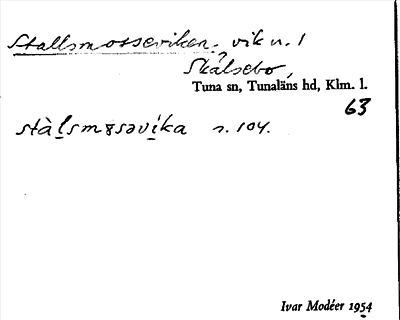 Stallsmosseviken, vik n. 1
Skälsebo,
Tuna sn, Tunaläns hd, Klm. l.
63
stàlsmɤsəvíka s. 104.
Ivar Modéer 1954